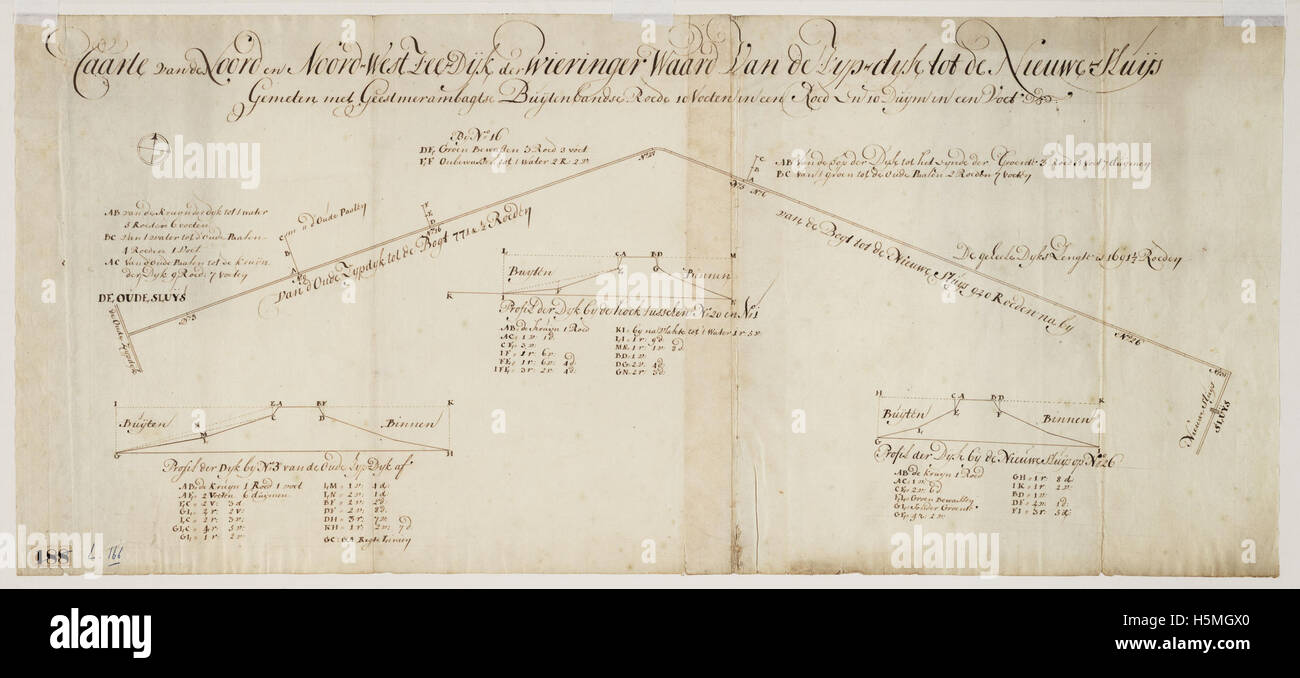 Caarte van de Noord en Noord-West Zee-Dÿk der Wieringer Waard Van de Zyp-dyk tot de Nieuwe-Sluÿs
Gemeten met Geestmerambagtse Buÿtenlandse Roede 10 Voeten in een Roed en 10 Duÿm in een Voet
By No. 16
DE, Groen Bewassen 3 Roed 3 voet
E,F Onbewassen tot 't water 2 R 2 v.
No. 20
C
B
A
No. 1
AB Van de Top der Dÿk tot het eÿnde der Groente 3 Roed 5 voet 7 duÿmen
BC van 't groen tot de Oude Paalen 2 Roeden 7 voeten
AB van de Kruÿn der dÿk tot 't water
5 Roeden 6 voeten
BC van 't water tot d'Oude Paalen
4 Roeden 1 Voet
AC Van d'Oude Paalen tot de kruÿn
der Dÿk 9 Roede 7 voeten
C
B
A
d'Oude Paalen
F
E
D
No. 16
van d'Oude Zypdyk tot de Bogt 771 1/2 Roeden
van de Bogt tot de Nieuwe Sluÿs 920 Roeden na by
De geheele Dyks Lengte is 1691 1/2 Roeden
DE OUDE SLUŸS
de Oude Zypdyk
No. 3
No. 26
No. 31
Nieuwe Sluÿs
SLUŸS
L CA BD M
Buÿten Binnen
E G
I F
K N
Profil der Dÿk by de hoek tusschen No. 20 en No. 1
AB: de kruÿn 1 Roed
AC = 1 v: 1 d.
CE = 3 v:
IF = 1 r: 6 v:
FE = 1 r: 6 v: 4 d:
IFE = 3 r: 2 v: 4 d:
KI = by na vlakte tot 't Water 1 r: 5 v:
LI = 1 r: 9 d:
MN = 1 r: 1 v: 2 d:
BD = 1 v:
DG = 2 v: 4 d:
GN = 2 r: 3 d:
I EA BF K
Buÿten Binnen
C D
N
M
L
G H
Profil der Dyk by No. 3 van de Oude Zyp Dyk af
AB: de Kruÿn 1 Roed 1 voet
AE = 2 Voeten 6 duÿmen
EC = 2 v: 3 d.
GL = 2 r: 2 v:
LC = 2 r: 3 v:
GLC = 4 r: 5 v:
GI = 1 r: 2 v:
LM = 1 v: 4 d:
LN = 2 v: 1 d:
BF = 2 v: 2 d:
DF = 2 v: 8 d:
DH = 3 r: 7 v:
KH = 1 r: 2 v: 7 d.
GC: GA Regte Linien
H CA BD K
Buÿten Binnen
E F
L
G I
Profil der Dyk by de Nieuwe Sluÿs op No. 26
AB: de kruÿn 1 Roed
AC = 1 v:
CE = 2 v: 6 d.
EL = Groen Bewassen
GL = Solider Groente
GE = 4 r: 2 v:
GH = 1 r: 8 d:
IK = 1 r: 2 v:
BD = 1 v:
DF = 2 v: 1 d:
FI = 3 r: 5 d:
188
L. 166
alamy
Image ID: H5MGX0
www.alamy.com